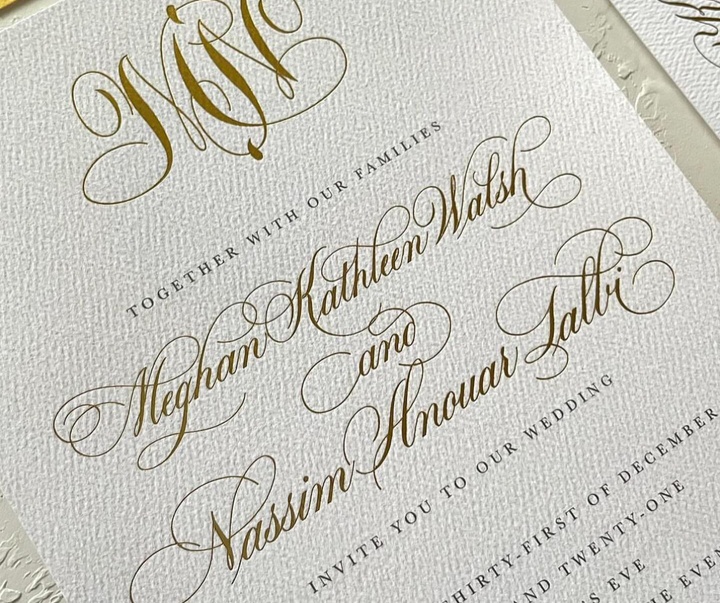 MN
TOGETHER WITH OUR FAMILIES
Meghan Kathleen Walsh
and
Nassim Anouar Talbi
INVITE YOU TO OUR WEDDING
THIRTY-FIRST OF DECEMBER
AND TWENTY-ONE
EVE
THE